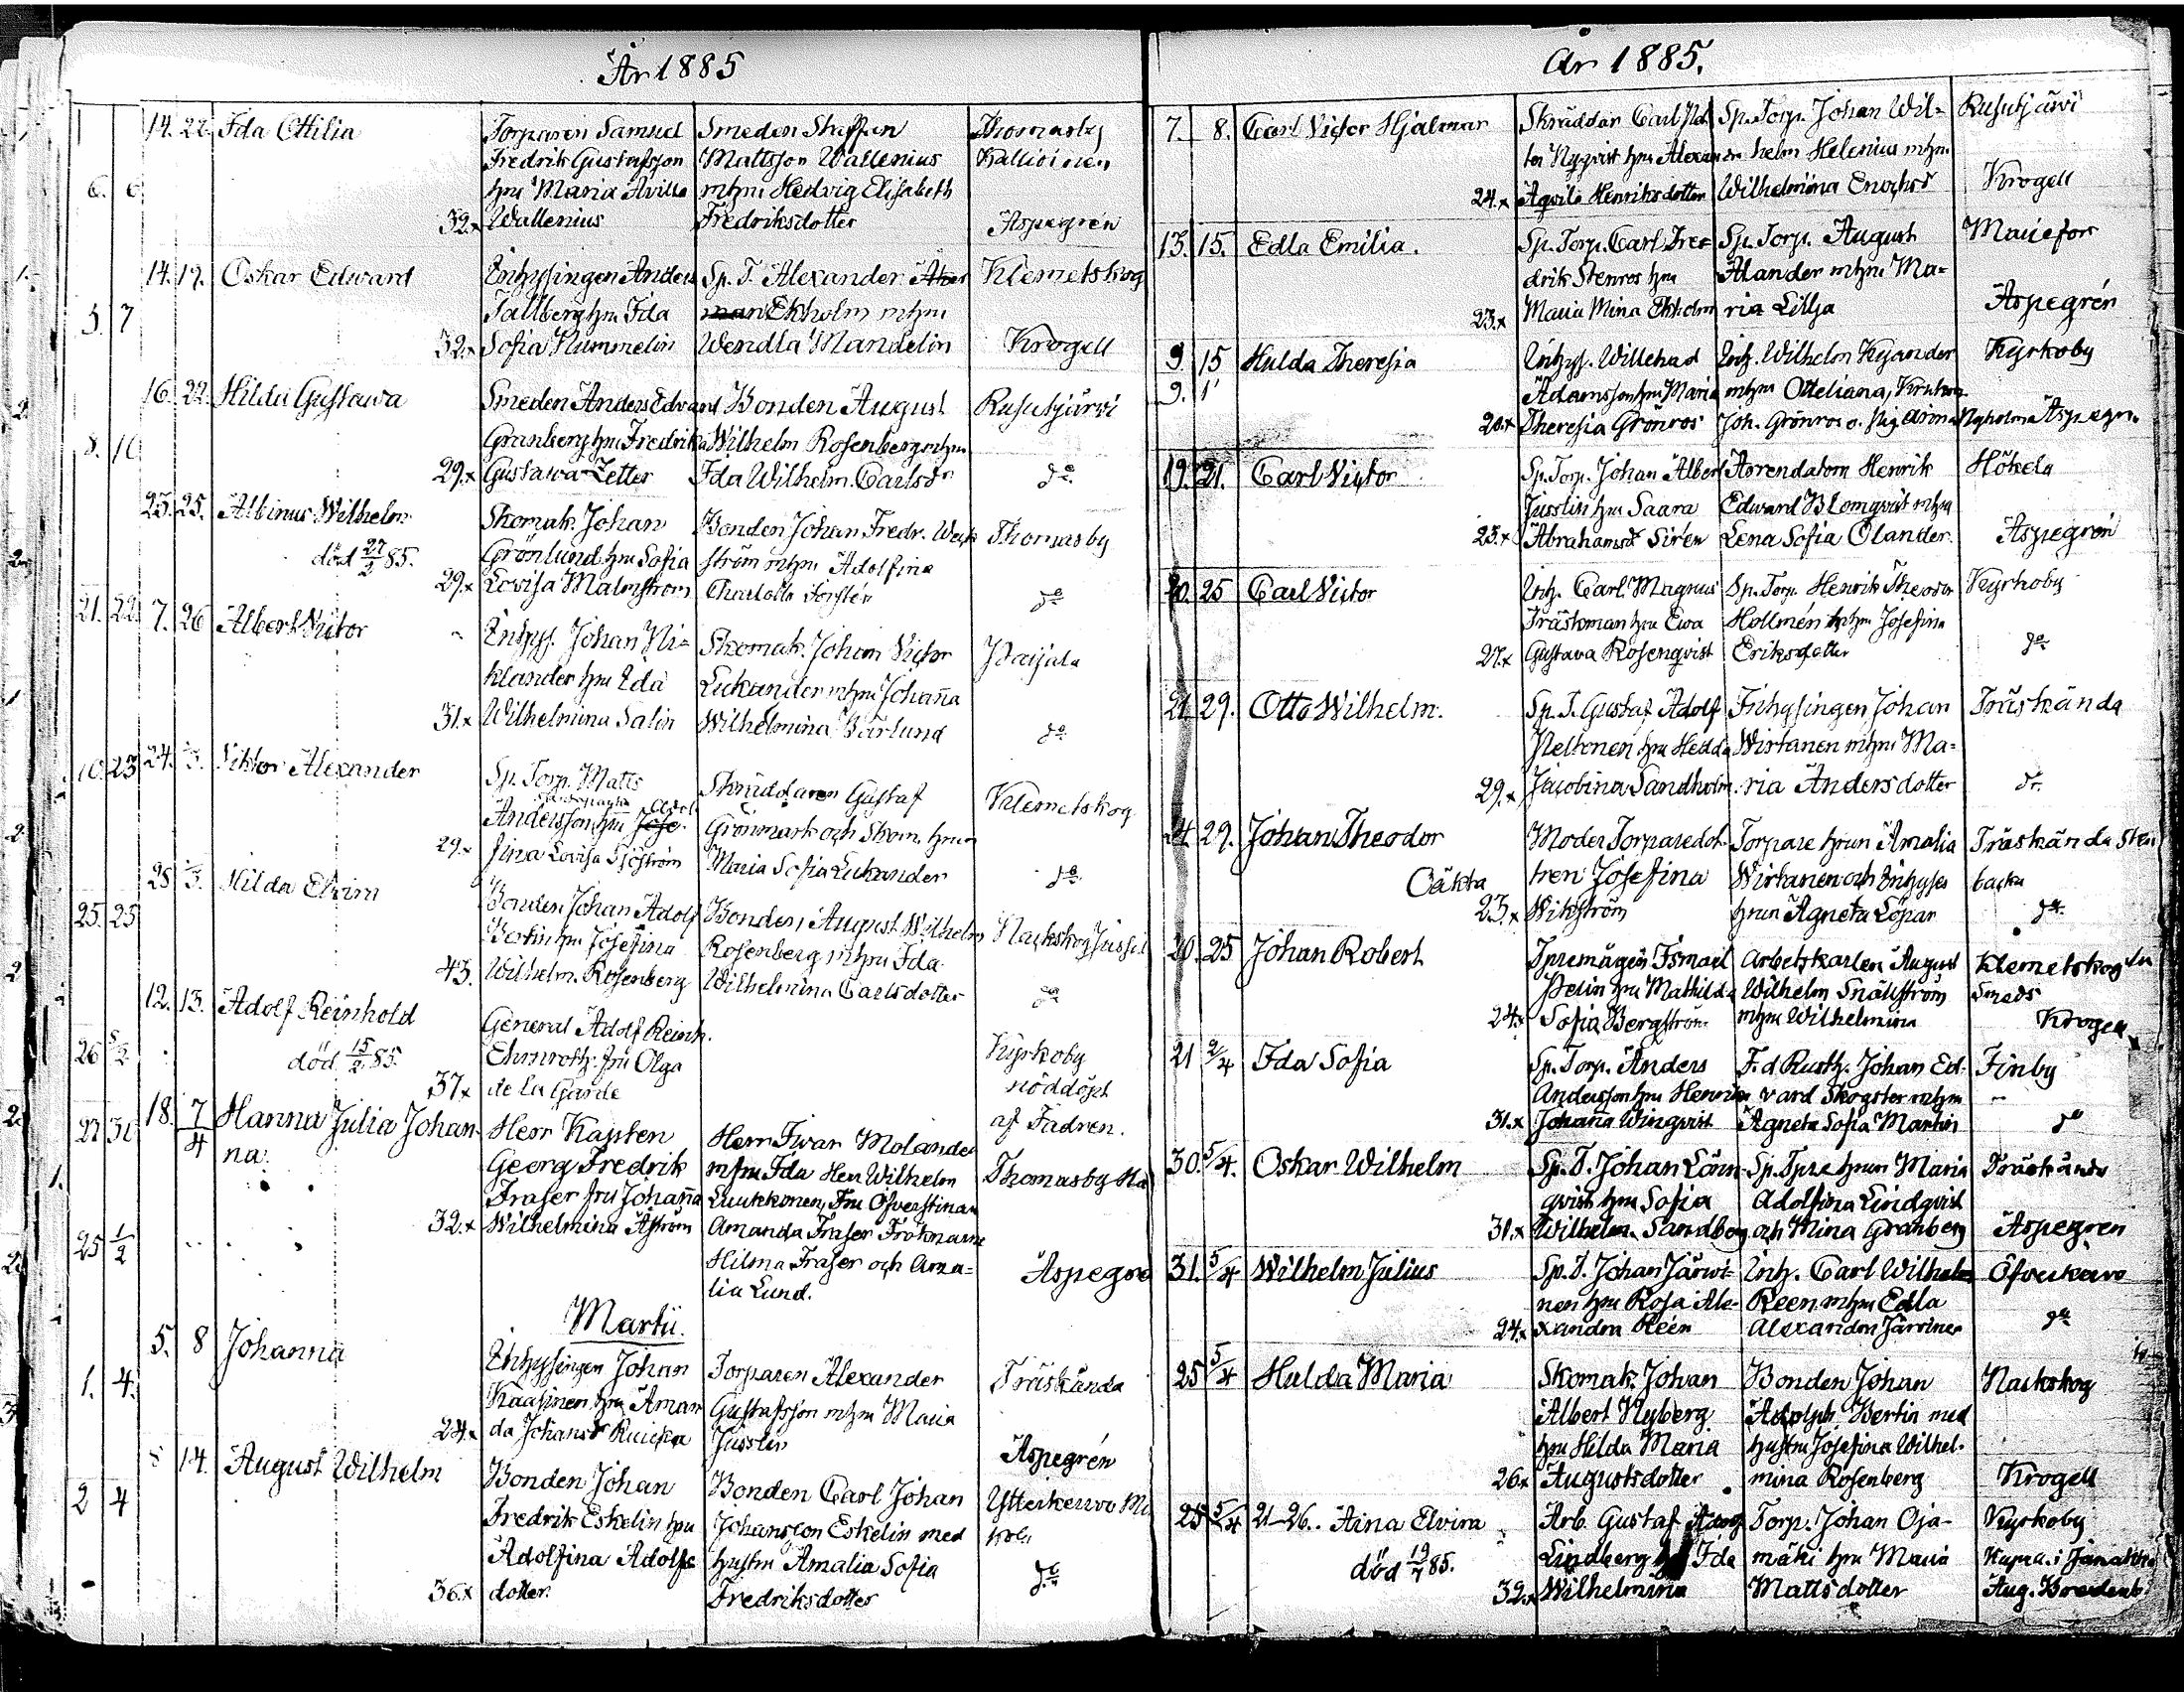 År 1885
14. 22. Ida Ottilia
Torparen Samuel
Fredrik Gustafsson
hru Maria Avilla
32.x Wallenius
Smeden Staffan
Mattsson Wallenius
mhru Hedvig Elisabeth
Fredriksdotter
Thomasby
Kallioinen
Aspegrén
14. 19. Oskar Edward
Inhysingen Anders
Tallberg hru Ida
32.x Sofia Hummelin
Sp. T. Alexander
Ekholm mhru
Wendla Mandelin
Klemetskog
Krogell
16. 22. Hilda Gustava
Smeden Anders Edward
Granberg hru Fredrika
29.x Gustawa Zetter
Bonden August
Wilhelm Rosenberg mhru
Ida Wilhelm. Carlsdr
Rusutjärvi
do
23. 25. Albinus Wilhelm
död 27/2 85.
Skomak. Johan
Grönlund hru Sofia
29.x Lovisa Malmström
Bonden Johan Fredr. Weck
ström mhru Adolfina
Charlotta Forstén
Thomasby
do
7. 26 Albert Victor
Inhys. Johan Ni-
klander hru Eda
31.x Wilhelmina Salin
Skomak. Johan Victor
Lukander mhru Johanna
Wilhelmina Bärlund
Paijala
do
24. 1/3. Viktor Alexander
Sp. Torp. Matts
Andersson hru Adol
29.x fina Lovisa Sjöström
Skräddaren Gustaf
Grönmark och Skom. hrun
Maria Sofia Lukander
Klemetskog
do
28 /3. Hilda Elvira
Bonden Johan Adolf
Bertin hru Josefina
43. Wilhelm. Rosenberg
Bonden August Wilhelm
Rosenberg mhru Ida
Wilhelmina Carlsdotter
Nackskog Jussil
do
12. 13. Adolf Reinhold
död 15/2 85.
General Adolf Reinh.
Ehrnrooth fru Olga
37x de la Garde
Kyrkoby
nöddöpt
af Fadren.
18. 7/4 Hanna Julia Johan-
na.
Herr Kapten
Georg Fredrik
Fraser fru Johanna
32.x Wilhelmina Åström
Herr Iwar Molander
mfru Ida Herr Wilhelm
Luukkonen, Fru Öfverstinnan
Amanda Fraser Fröknarne
Hilma Fraser och Ama-
lia Lund.
Thomasby
Aspegré
Martii.
5. 8 Johanna
Inhysingen Johan
Kaasinen hru Aman
24.x da Johansdr
Torparen Alexander
Gustafsson mhru Maria
Jusslin
Träskända
Aspegrén
8 14. August Wilhelm
Bonden Johan
Fredrik Eskelin hru
Adolfina Adolfs
36.x dotter.
Bonden Carl Johan
Johansson Eskelin med
hustru Amalia Sofia
Fredriksdotter
Ytterkervo
do
År 1885.
7. 8. Carl Victor Hjalmar
Skräddar Carl Vik
tor Nyqvist hru Alexan dra
24.x Aqvila Henriksdotter
Sp. Torp. Johan Wil-
helm Helenius mhru
Wilhelmina Enochsdr
Rusutjärvi
Krogell
13. 15. Edla Emilia.
Sp. Torp. Carl Fre-
drik Stenros hru
23.x Maria Mina Ekholm
Sp. Torp. August
Ålander mhru Ma-
ria Lilja
Mariefor
Aspegrén
9. 15 Hulda Theresia
Inhys. Willehad
Adamsson hru Maria
20.x Theresia Grönros
Inh. Wilhelm Kyander
mhru Otteliana,
Joh. Grönros o. Pig. Anna Nyholm
Kyrkoby
Aspegrn.
19. 21. Carl Victor
Sp. Torp. Johan Albert
Jusslin hru Saara
23.x Abrahamsdr Sirén
Arrendatorn Henrik
Edward Blomqvist mhru
Lena Sofia Ölander.
Hökela
Aspegrén
20. 25 Carl Victor
Inh. Carl Magnus
Träskman hru Ewa
27.x Gustava Rosenqvist
Sp. Torp. Henrik Theodor
Hollmén mhru Josefina
Eriksdotter
Kyrkoby
do
21 29. Otto Wilhelm.
Sp. T. Gustaf Adolf
Peltonen hru Hedda
29.x Jacobina Sandholm
Inhysingen Johan
Wirtanen mhru Ma-
ria Andersdotter
Träskända
do.
24 29. Johan Theodor
Oäkta
Moder Torparedot-
tren Josefina
23.x Wikström
Torpare hrun Amalia
Wirtanen och Inhyses
hrun Agneta Löpar
Träskända Sten
backa
do.
20. 25 Johan Robert
Tpremågen Ismael
Pelin hru Mathilda
24.x Sofia Bergström
Arbetskarlen August
Wilhelm Snällström
mhru Wilhelmina
Klemetskog
Smeds
Krogell
21 2/4 Ida Sofia
Sp. Torp. Anders
Andersson hru Henrika
31.x Johanna Winqvist
F.d Rusth. Johan Ed-
vard Skogster mhru
Agneta Sofia Martin
Finby
do
30. 5/4. Oskar Wilhelm
Sp. T. Johan Lönn
qvist hru Sofia
31.x Wilhelm. Sandberg
Sp. Tpre hrun Maria
Adolfina Lindqvist
och Mina Granberg
Träskända
Aspegren
31. 5/4 Wilhelm Julius
Sp. T. Johan Järwi-
nen hru Rosa Ale-
24.x xandra Reén
Inh. Carl Wilhelm
Reen mhru Edla
Alexandra Järvinen
Öfverkervo
do
25 5/4 Hulda Maria
Skomak. Johan
Albert Nyberg
hru Hilda Maria
26.x Augustsdotter
Bonden Johan
Adolph Bertin med
hustru Josefina Wilhel-
mina Rosenberg
Nackskog
Krogell
25 5/4 21-26.. Aina Elvira
död 19/7 85.
Arb. Gustaf
Lindberg Ida
32.x Wilhelmina
Torp. Johan Oja-
mäki hru Maria
Mattsdotter
Kyrkoby
i Janakka
Aug.